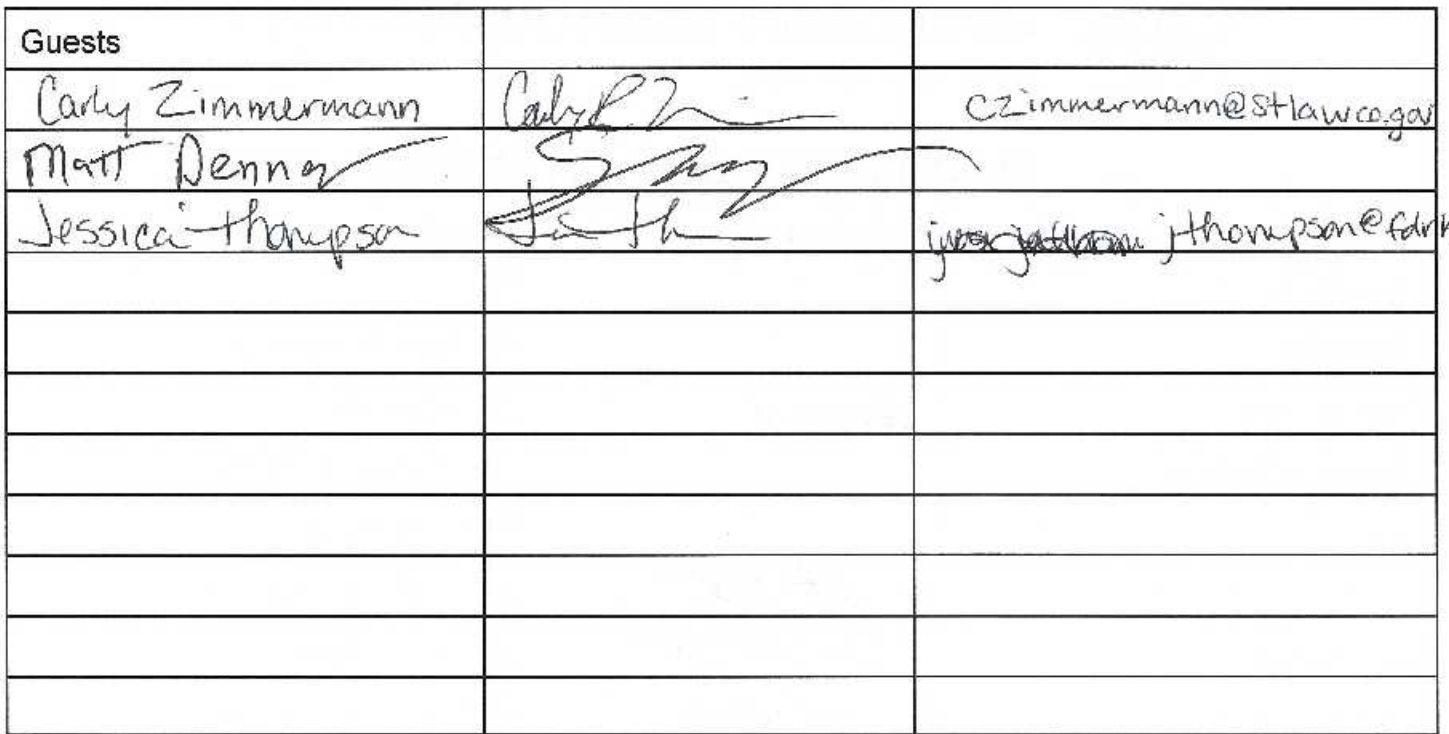 Guests
Carly Zimmermann czimmermann@stlawco.gov
Matt Denner
Jessica Thompson jthompson@fdrh